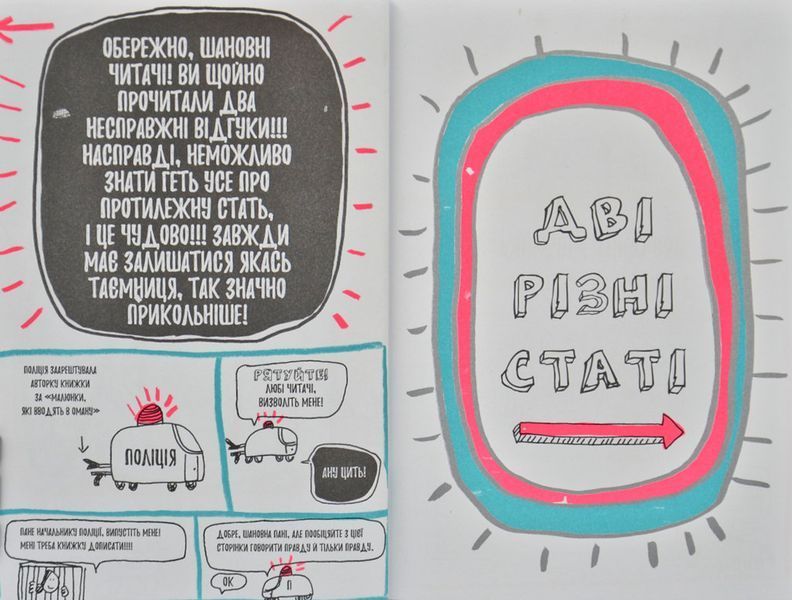 ОБЕРЕЖНО, ШАНОВНІ
ЧИТАЧІ! ВИ ЩОЙНО
ПРОЧИТАЛИ ДВА
НЕСПРАВЖНІ ВІДГУКИ!!!
НАСПРАВДІ, НЕМОЖЛИВО
ЗНАТИ ГЕТЬ УСЕ ПРО
ПРОТИЛЕЖНУ СТАТЬ,
І ЦЕ ЧУДОВО!!! ЗАВЖДИ
МАЄ ЗАЛИШАТИСЯ ЯКАСЬ
ТАЄМНИЦЯ, ТАК ЗНАЧНО
ПРИКОЛЬНІШЕ!
ПОЛІЦІЯ ЗААРЕШТУВАЛА
АВТОРКУ КНИЖКИ
ЗА «МАЛЮНКИ,
ЯКІ ВВОДЯТЬ В ОМАНУ»
ПОЛІЦІЯ
РЯТУЙТЕ!
ЛЮБІ ЧИТАЧІ,
ВИЗВОЛІТЬ МЕНЕ!
АНУ ЦИТЬ!
ПАНЕ НАЧАЛЬНИКУ ПОЛІЦІЇ, ВИПУСТІТЬ МЕНЕ!
МЕНІ ТРЕБА КНИЖКУ ДОПИСАТИ!!!!
ДОБРЕ, ШАНОВНА ПАНІ, АЛЕ ПООБІЦЯЙТЕ З ЦІЄЇ
СТОРІНКИ ГОВОРИТИ ПРАВДУ Й ТІЛЬКИ ПРАВДУ.
ОК
П
ДВІ
РІЗНІ
СТАТІ